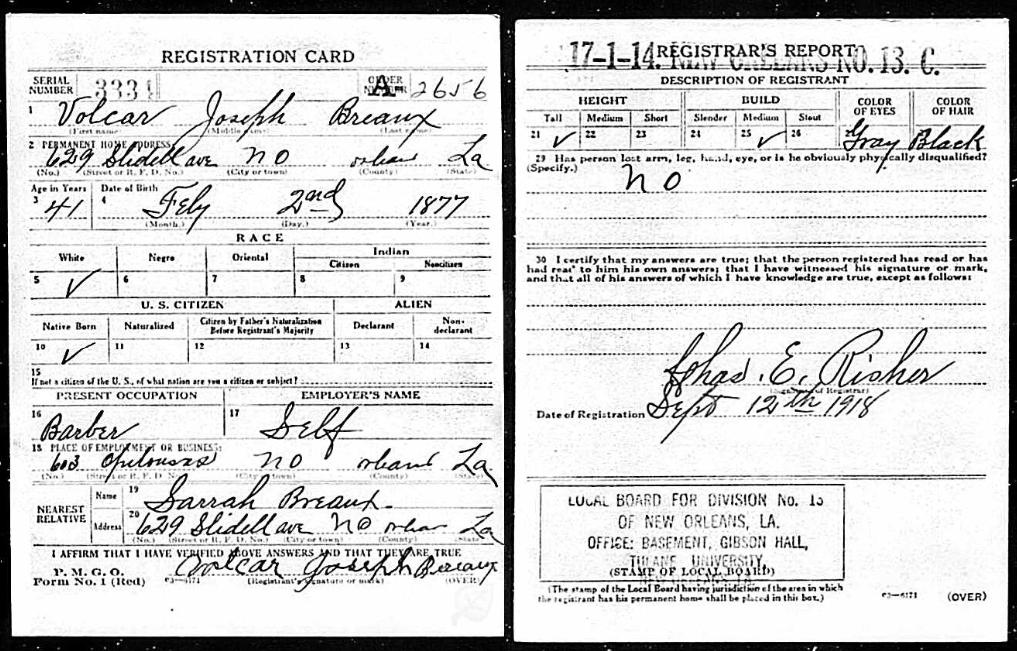 REGISTRATION CARD
SERIAL NUMBER 3334 ORDER NUMBER A 2656
1 Volcar Joseph Breaux
(First name) (Middle name) (Last name)
2 PERMANENT HOME ADDRESS:
629 Slidell ave N O orleans La
(No.) (Street or R. F. D. No.) (City or town) (County) (State)
Age in Years Date of Birth
3 41 4 Feby 2nd 1877
(Month.) (Day.) (Year.)
RACE
White Negro Oriental Indian
Citizen Noncitizen
5 ✓ 6 7 8 9
U. S. CITIZEN ALIEN
Native Born Naturalized Citizen by Father's Naturalization Before Registrant's Majority Declarant Non-declarant
10 ✓ 11 12 13 14
15
If not a citizen of the U. S., of what nation are you a citizen or subject?
PRESENT OCCUPATION EMPLOYER'S NAME
16 Barber 17 Self
18 PLACE OF EMPLOYMENT OR BUSINESS:
603 Opelousas N O orleans La
(No.) (Street or R. F. D. No.) (City or town) (County) (State)
NEAREST RELATIVE Name 19 Sarrah Breaux
Address 20 629 Slidell ave N O orlean La
(No.) (Street or R. F. D. No.) (City or town) (County) (State)
I AFFIRM THAT I HAVE VERIFIED ABOVE ANSWERS AND THAT THEY ARE TRUE
P. M. G. O.
Form No. 1 (Red) 03—6171 Volcar Joseph Bereaux
(Registrant's signature or mark) (OVER)
17-1-14. NEW ORLEANS NO. 13. C.
REGISTRAR'S REPORT
DESCRIPTION OF REGISTRANT
HEIGHT BUILD COLOR OF EYES COLOR OF HAIR
Tall Medium Short Slender Medium Stout
21 ✓ 22 23 24 25 ✓ 26 27 Gray Black
29 Has person lost arm, leg, hand, eye, or is he obviously physically disqualified?
(Specify.) N O
30 I certify that my answers are true; that the person registered has read or has
had read to him his own answers; that I have witnessed his signature or mark,
and that all of his answers of which I have knowledge are true, except as follows:
Chas. E. Risher
(Signature of Registrar)
Date of Registration Sept 12th 1918
LOCAL BOARD FOR DIVISION No. 13
OF NEW ORLEANS, LA.
OFFICE: BASEMENT, GIBSON HALL,
TULANE UNIVERSITY
(STAMP OF LOCAL BOARD)
(The stamp of the Local Board having jurisdiction of the area in which
the registrant has his permanent home shall be placed in this box.)
03—6171 (OVER)